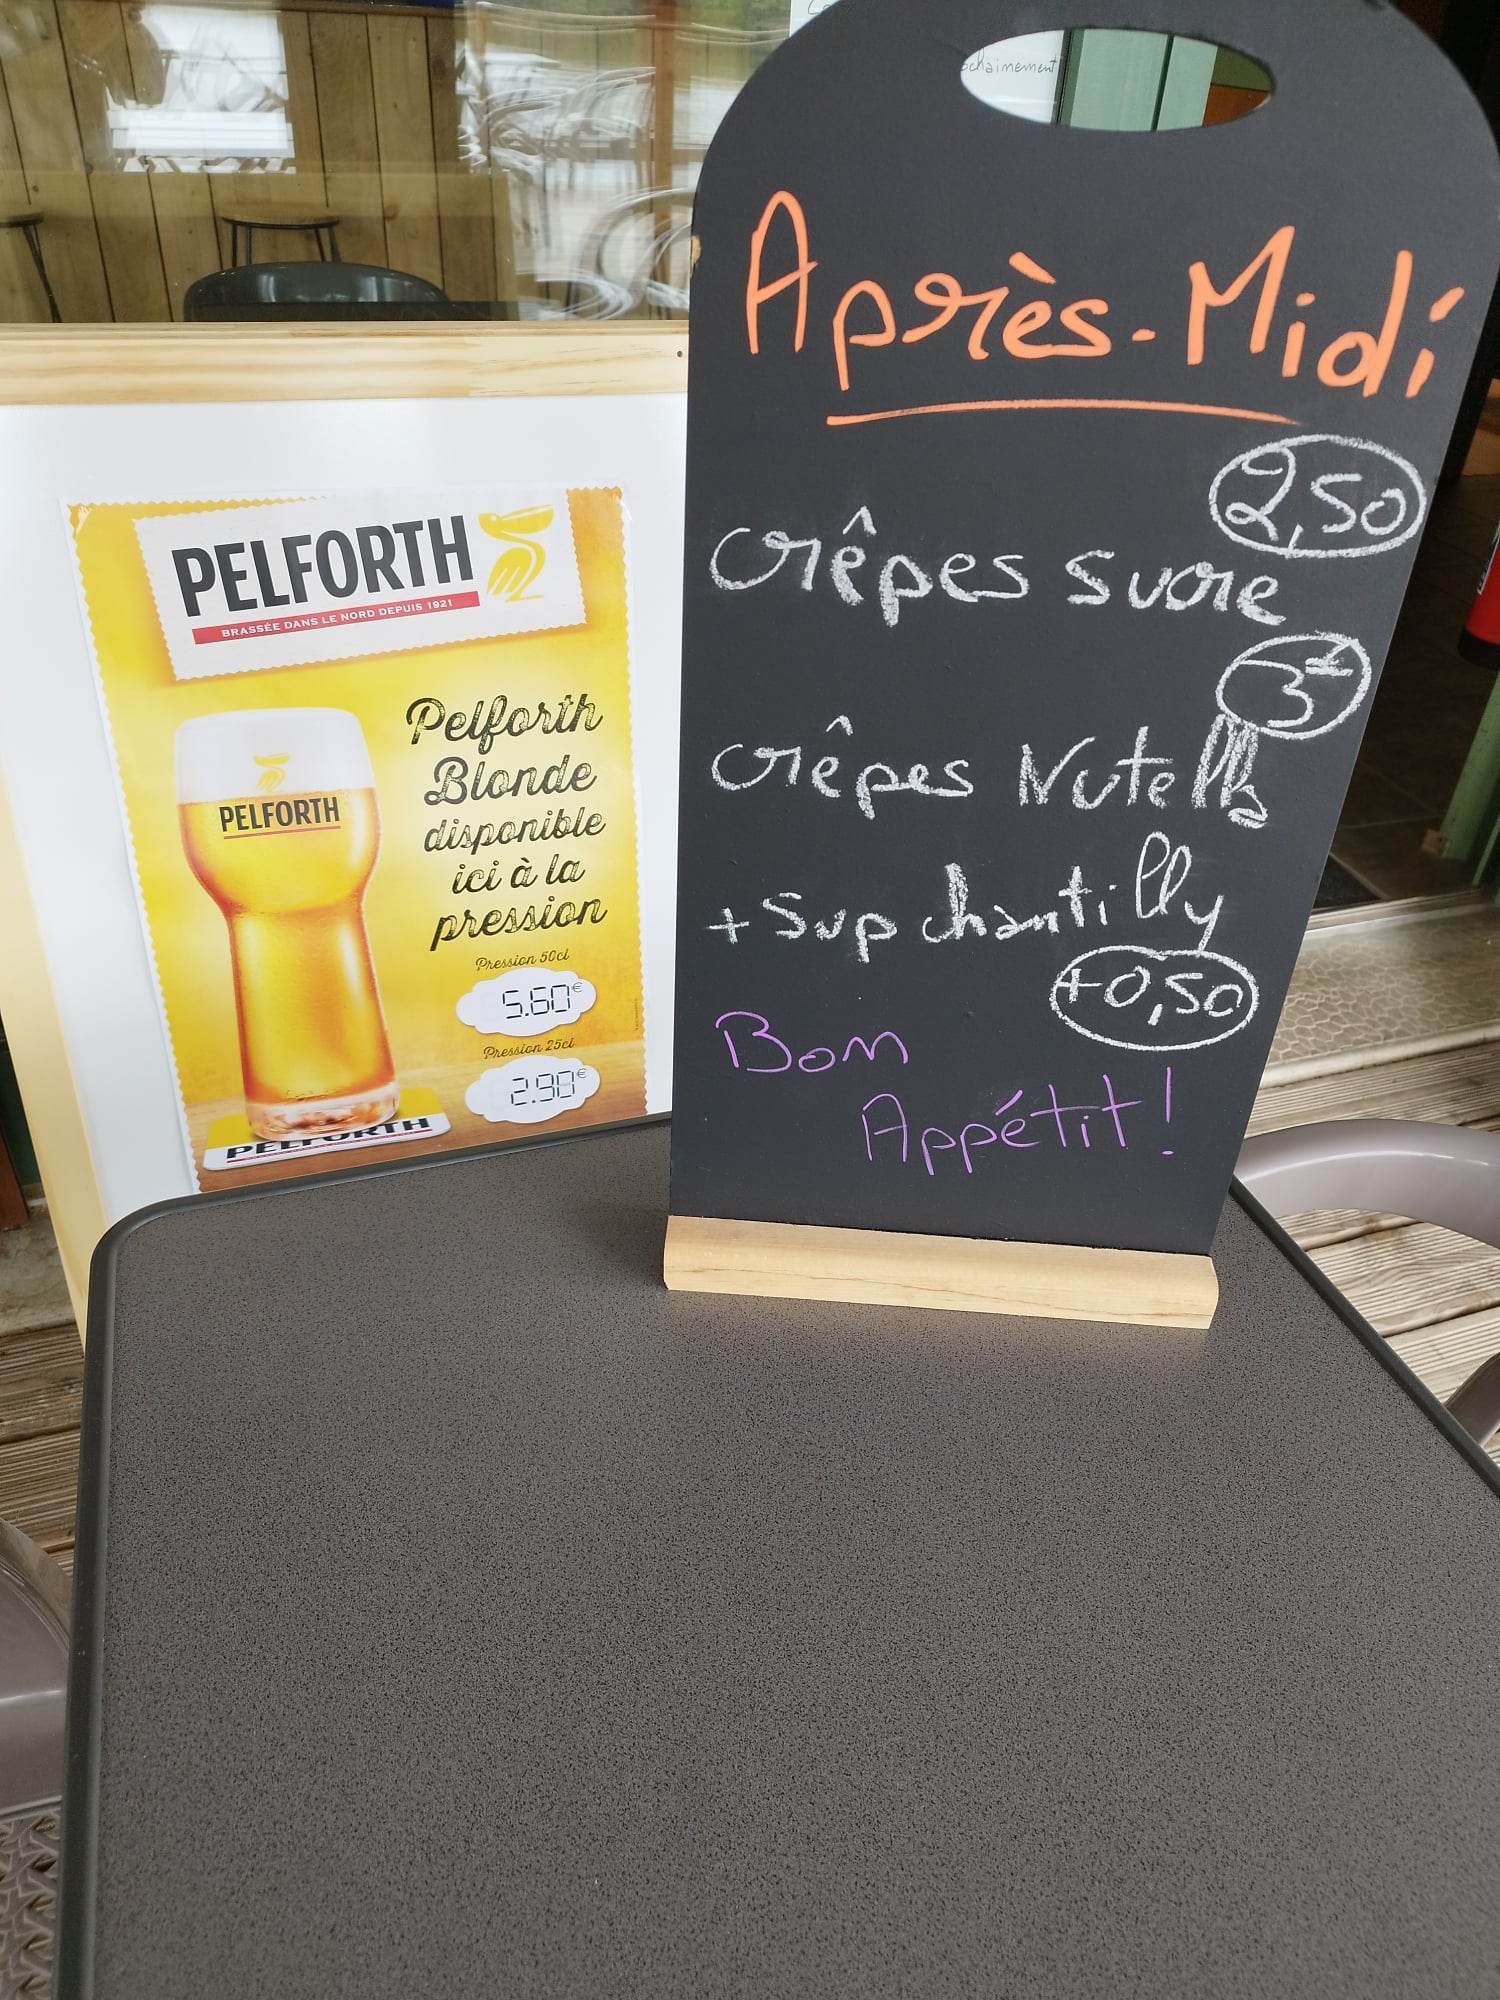 PELFORTH
BRASSÉE DANS LE NORD DEPUIS 1921
Pelforth
Blonde
disponible
ici à la
pression
Pression 50cl
5.60€
Pression 25cl
2.90€
PELFORTH
PELFORTH
chainement
Après-Midi
2,50
crêpes sucre
3€
crêpes Nutella
+ Sup chantilly
+0,50
Bon
Appétit!